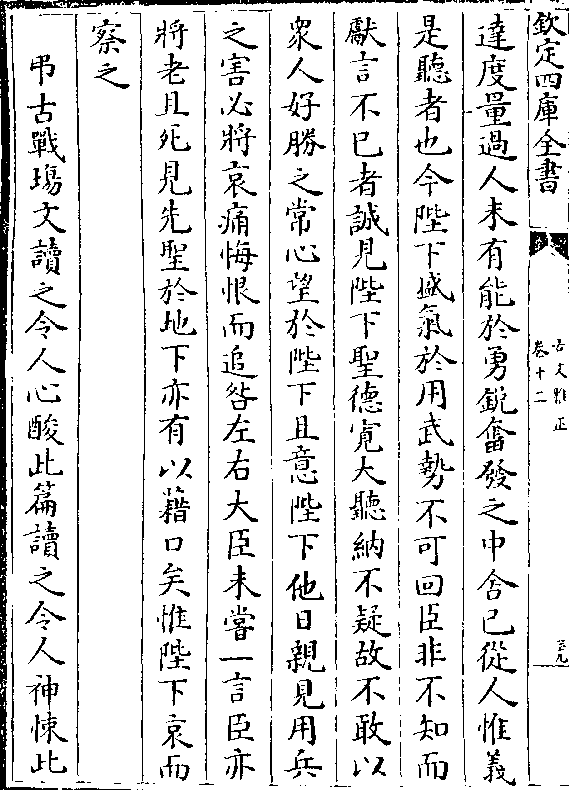 欽定四庫全書
古文雅正
卷十二
達度量過人未有能於勇鋭奮發之中舍已從人惟義
是聽者也今陛下盛氣於用武勢不可回臣非不知而
獻言不已者誠見陛下聖德寛大聽納不疑故不敢以
衆人好勝之常心望於陛下且意陛下他日親見用兵
之害必將哀痛悔恨而追咎左右大臣未嘗一言臣亦
將老且死見先聖於地下亦有以藉口矣惟陛下哀而
察之
弔古戰塲文讀之令人心酸此篇讀之令人神悚此